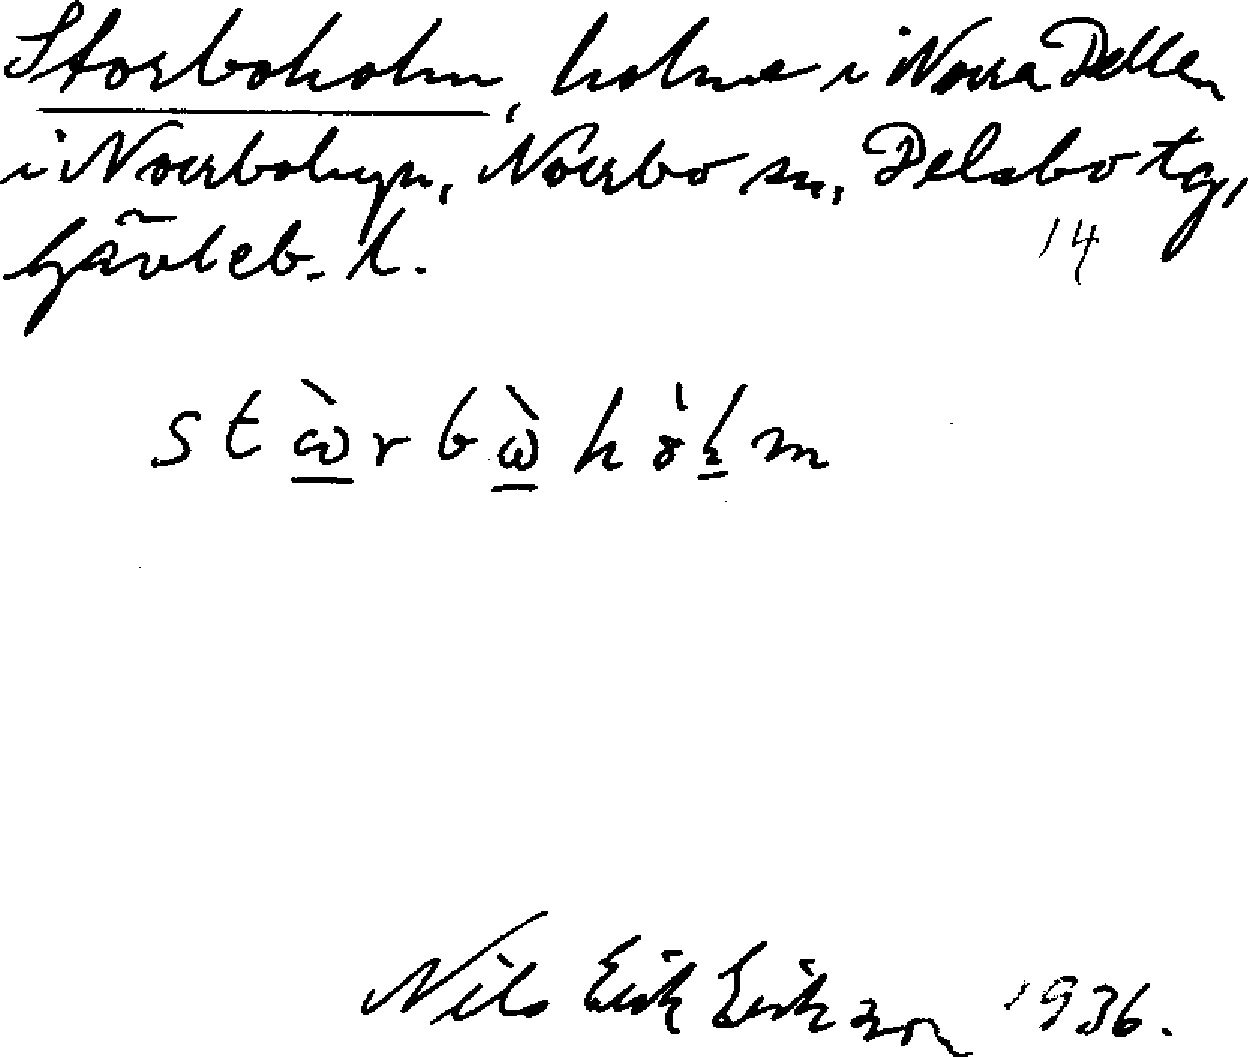 Storboholm, holme i Norra Dellen
i Norrbobyn, Norrbo sn, Delsbo tg,
Gävleb. l.
14
Nils Erik Erikson 1936.